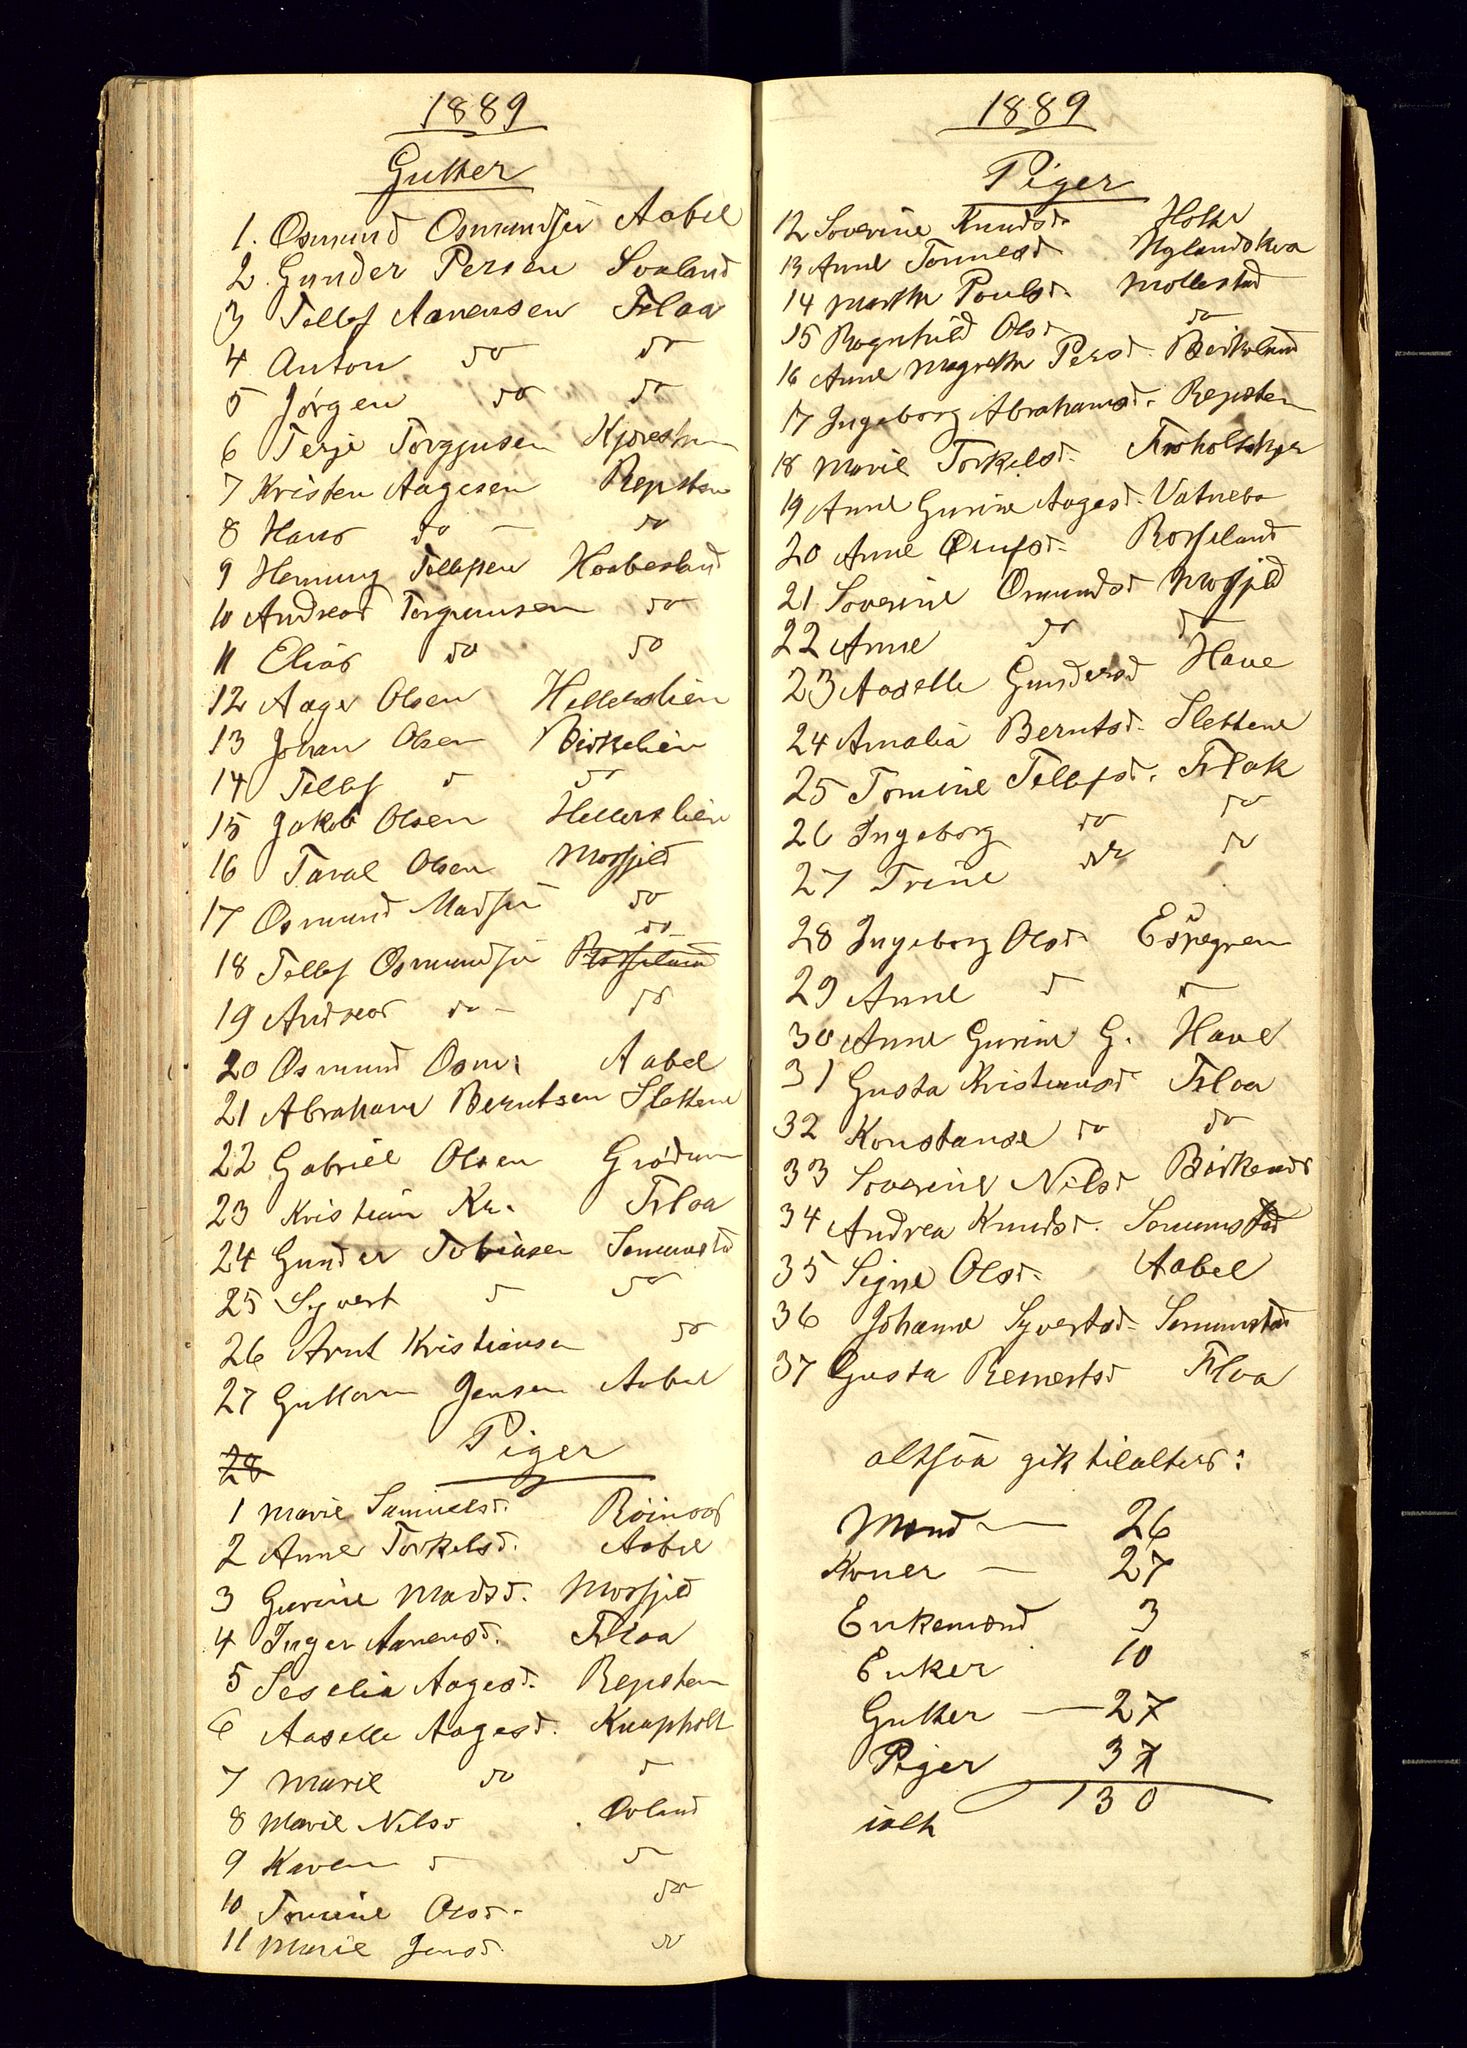 1889
Gutter
1. Osmund Osmundsen Aabel
2. Gunder Persen Svaland
3 Tellef Aanensen Flaa
4 Anton do do
5 Jørgen do do
6 Terje Torgjusen
7 Kristen Aagesen Repsten
8 Hans do — do
9 Henning Tellefsen Haabesland
10 Andreas do
11 Elias do do
12 Aage Olsen Hellerslien
13 Johan Olsen Birkelien
14 Tellef d do
15 Jakob Olsen Hellerslien
16 Taral Olsen Mosfjeld
17 Osmund Madsen do
18 Tellef Osmundsen Rosseland do
19 Andreas do - do
20 Osmund Osm. Aabel
21 Abraham Berntsen Slettene
22 Gabriel Olsen Grødum
23 Kristian Kr. Flaa
24 Gunder Tobiasen
25 Syvert d do
26 Arnt Kristiansen do
27 Guttorm Jensen Aabel
28
Piger
1 Marie Samuelsd.
2 Anne Torkelsd. Aabel
3 Gurine Madsd. Mosfjeld
4 Inger Aanensd. Flaa
5 Seselia Aagesd. Repsten
6 Aaselle Aagesd. Knapholt
7 Marie do d
8 Marie Nilsd
9 Karen d d
10 Tomine Olsd. do
11 Marie Jensd. do
1889
Piger
12 Soverine Knudsd. Holte
13 Anne Tomnesd
14 Marthe Poulsd. Mollestad
15 Ragnhild Olsd do
16 Anne Magrethe Persd. Birkeland
17 Ingeborg Abrahamsd. Repsten
18 Marie Torkelsd.
19 Anne Gurine Aagesd. Vatnebo
20 Anne Rosseland
21 Soverine Osmundsd Mosfjeld
22 Anne do d
23 Aaselle Gundersd Have
24 Amalia Berntsd. Slettene
25 Tomine Tellefsd. Flak
26 Ingeborg do do
27 Trine do do
28 Ingeborg Olsd. Espegren
29 Anne d d
30 Anne Gurine G. Have
31 Gusta Kristiansd Flaa
32 Konstanse do do
33 Soverine Nilsd
34 Andrea Knudsd.
35 Signe Olsd. Aabel
36 Johanne Syvertsd.
37 Gusta Reinertsd Flaa
altsaa gik tilalters:
Mænd — 26
Koner — 27
Enkemænd 3
Enker 10
Gutter — 27
Piger 37
ialt 130